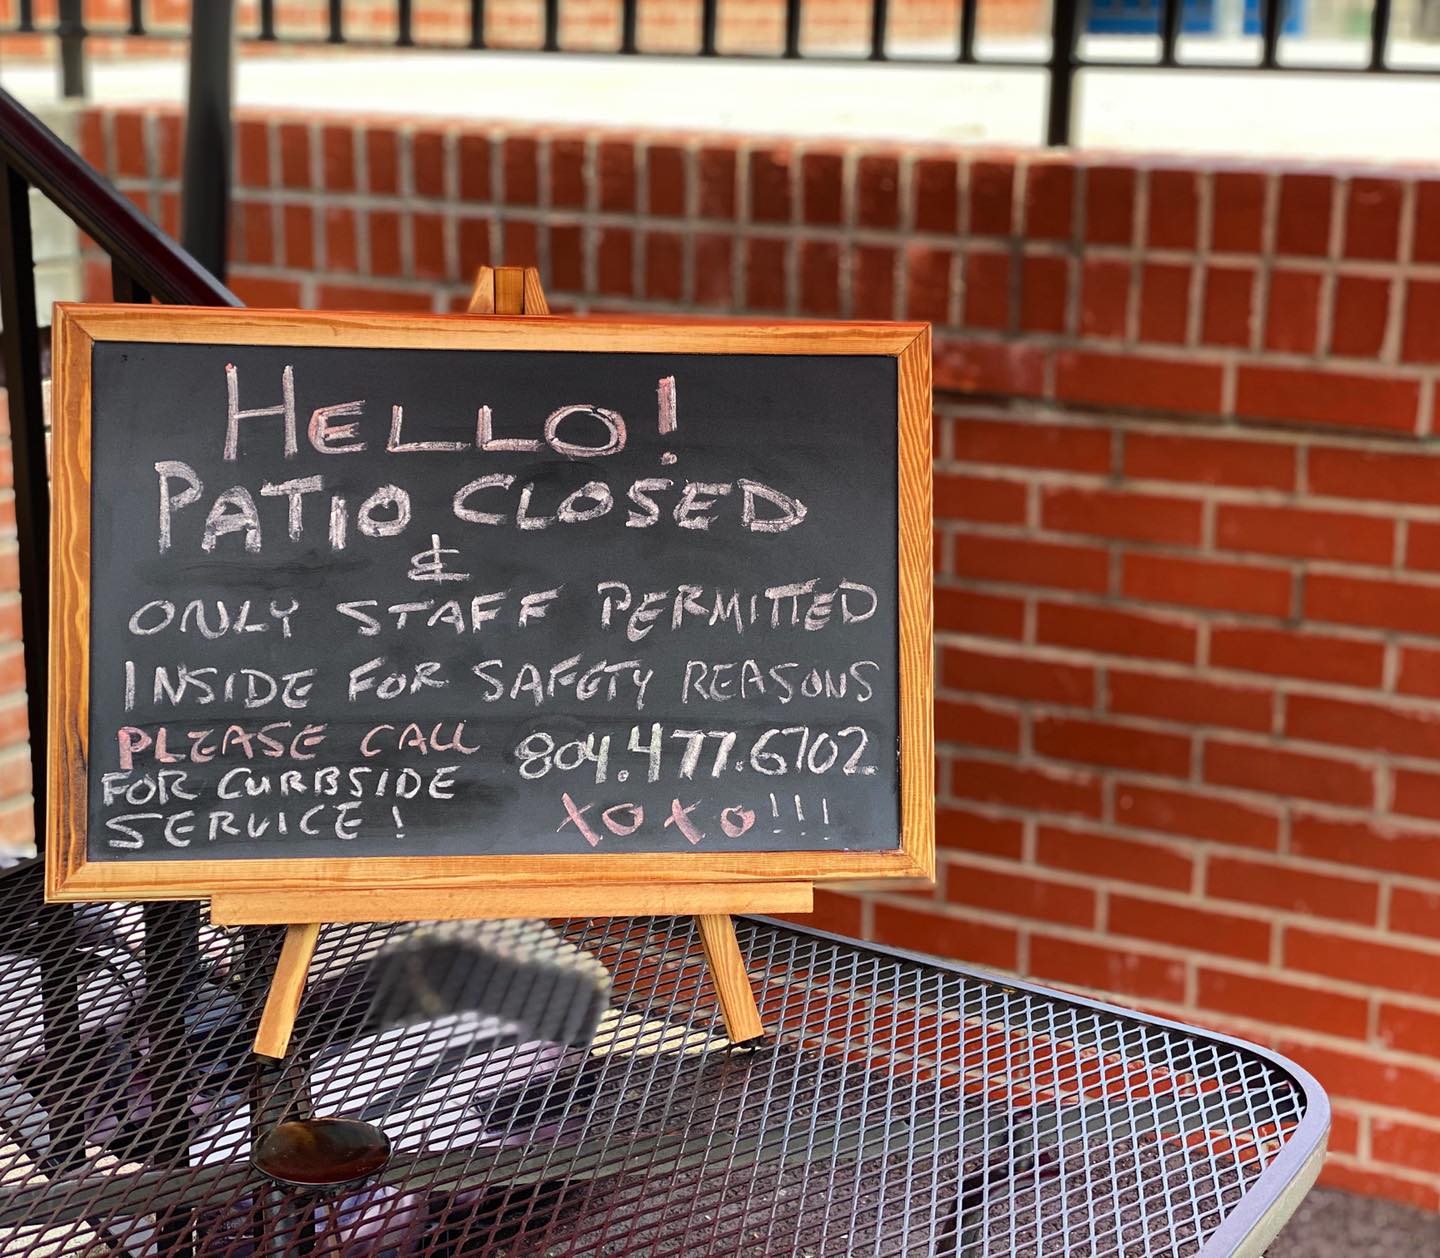 HELLO!
PATIO CLOSED
&
ONLY STAFF PERMITTED
INSIDE FOR SAFETY REASONS
PLEASE CALL 804.477.6702
FOR CURBSIDE
SERVICE! XOXO!!!